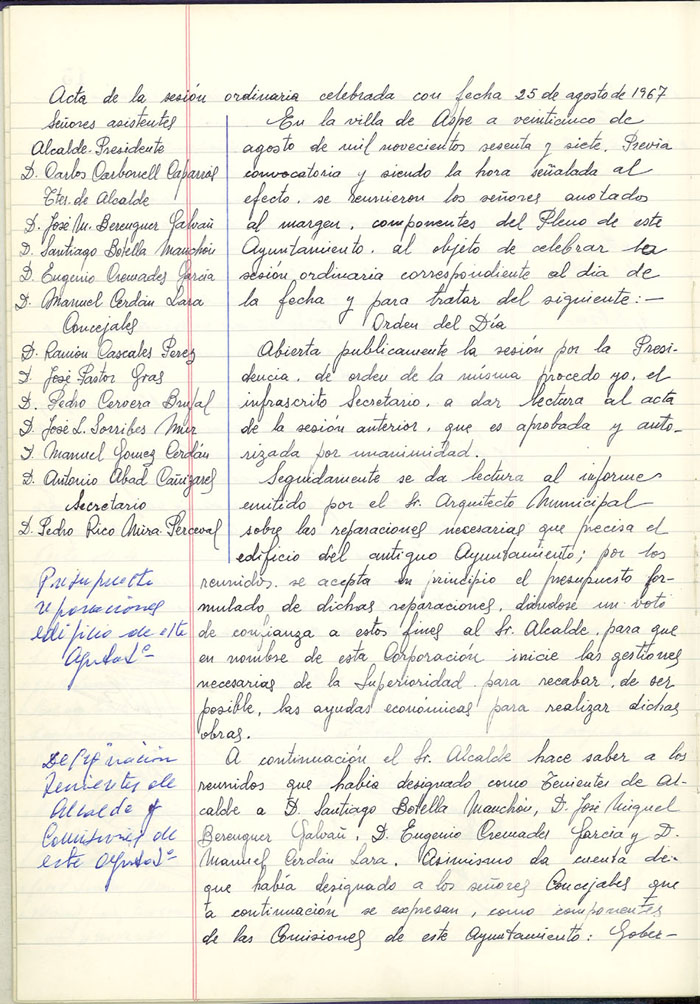 Acta de la sesión ordinaria celebrada con fecha 25 de agosto de 1967
Señores asistentes
Alcalde-Presidente
D. Carlos Carbonell Caparrós
Ttes. de Alcalde
D. José M. Berenguer Galvañ
D. Santiago Botella Manchón
D. Eugenio Cremades Garcia
D. Manuel Cerdán Lara
Concejales
D. Ramón Cascales Perez
D. José Pastor Gras
D. Pedro Cervera Brufal
D. José L. Sorribes Mir
D. Manuel Gomez Cerdán
D. Antonio Abad Cañizares
Secretario
D. Pedro Rico Mira-Perceval
En la villa de Aspe a veinticinco de
agosto de mil novecientos sesenta y siete. Previa
convocatoria y siendo la hora señalada al
efecto, se reunieron los señores anotados
al margen, componentes del Pleno de este
Ayuntamiento, al objeto de celebrar la
sesión ordinaria correspondiente al dia de
la fecha y para tratar del siguiente: —
Orden del Día
Abierta publicamente la sesión por la Presi-
dencia, de orden de la misma procedo yo, el
infrascrito Secretario, a dar lectura al acta
de la sesión anterior, que es aprobada y auto-
rizada por unanimidad.
Seguidamente se da lectura al informe
emitido por el Sr. Arquitecto Municipal
sobre las reparaciones necesarias que precisa el
edificio del antiguo Ayuntamiento; por los
Presupuesto
reparaciones
edificio de este
reunidos, se acepta en principio el presupuesto for-
mulado de dichas reparaciones, dándose un voto
de confianza a estos fines al Sr. Alcalde, para que
en nombre de esta Corporación inicie las gestiones
necesarias de la Superioridad para recabar, de ser
posible, las ayudas económicas para realizar dichas
obras.
Designación
Tenientes de
Alcalde y
Comisiones de
este
A continuación el Sr. Alcalde hace saber a los
reunidos que habia designado como Tenientes de Al-
calde a D. Santiago Botella Manchón, D. José Miguel
Berenguer Galvañ, D. Eugenio Cremades Garcia y D.
Manuel Cerdán Lara. Asimismo da cuenta de
que había designado a los señores Concejales que
a continuación se expresan, como componentes
de las Comisiones de este Ayuntamiento: Gober-